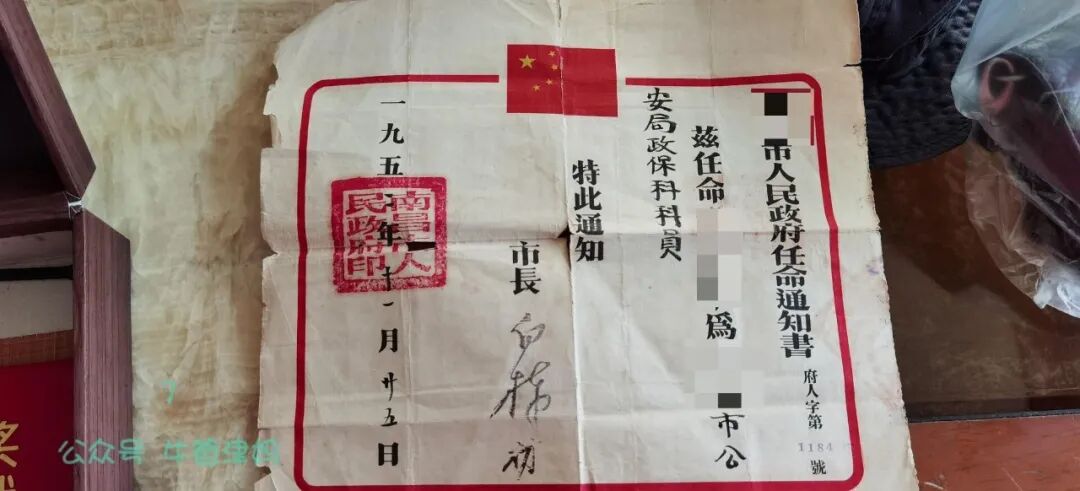 市人民政府任命通知書
府人字第1184號
兹任命 爲 市公
安局政保科科員
特此通知
市長
一九五 年十一月廿五日
南昌市人
民政府印
公众号
奖